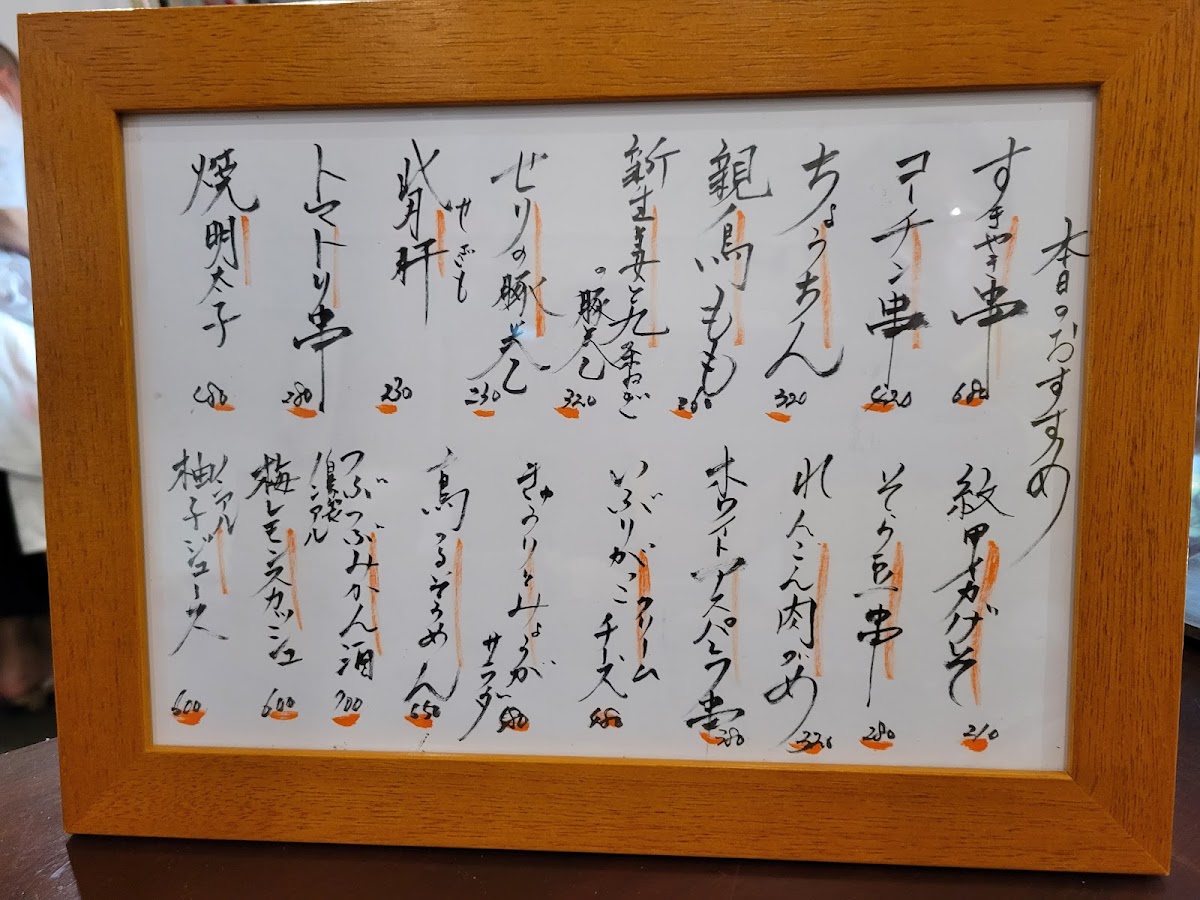 本日のおすすめ
すきやき串
680
コーチン串
420
ちょうちん
320
親鳥もも
260
新生姜と九条ねぎ
の豚巻
320
せりの豚巻
230
背肝
せぎも
230
トマトリ串
280
焼明太子
480
紋甲イカげそ
210
そら豆串
280
れんこん肉づめ
320
ホワイトアスパラ串
280
いぶりがっこクリーム
チーズ
480
きゅうりとみょうが
サラダ
480
鳥つるそうめん
550
つぶつぶみかん酒
700
ノンアル
梅レモンスカッシュ
600
ノンアル
柚子ジュース
600